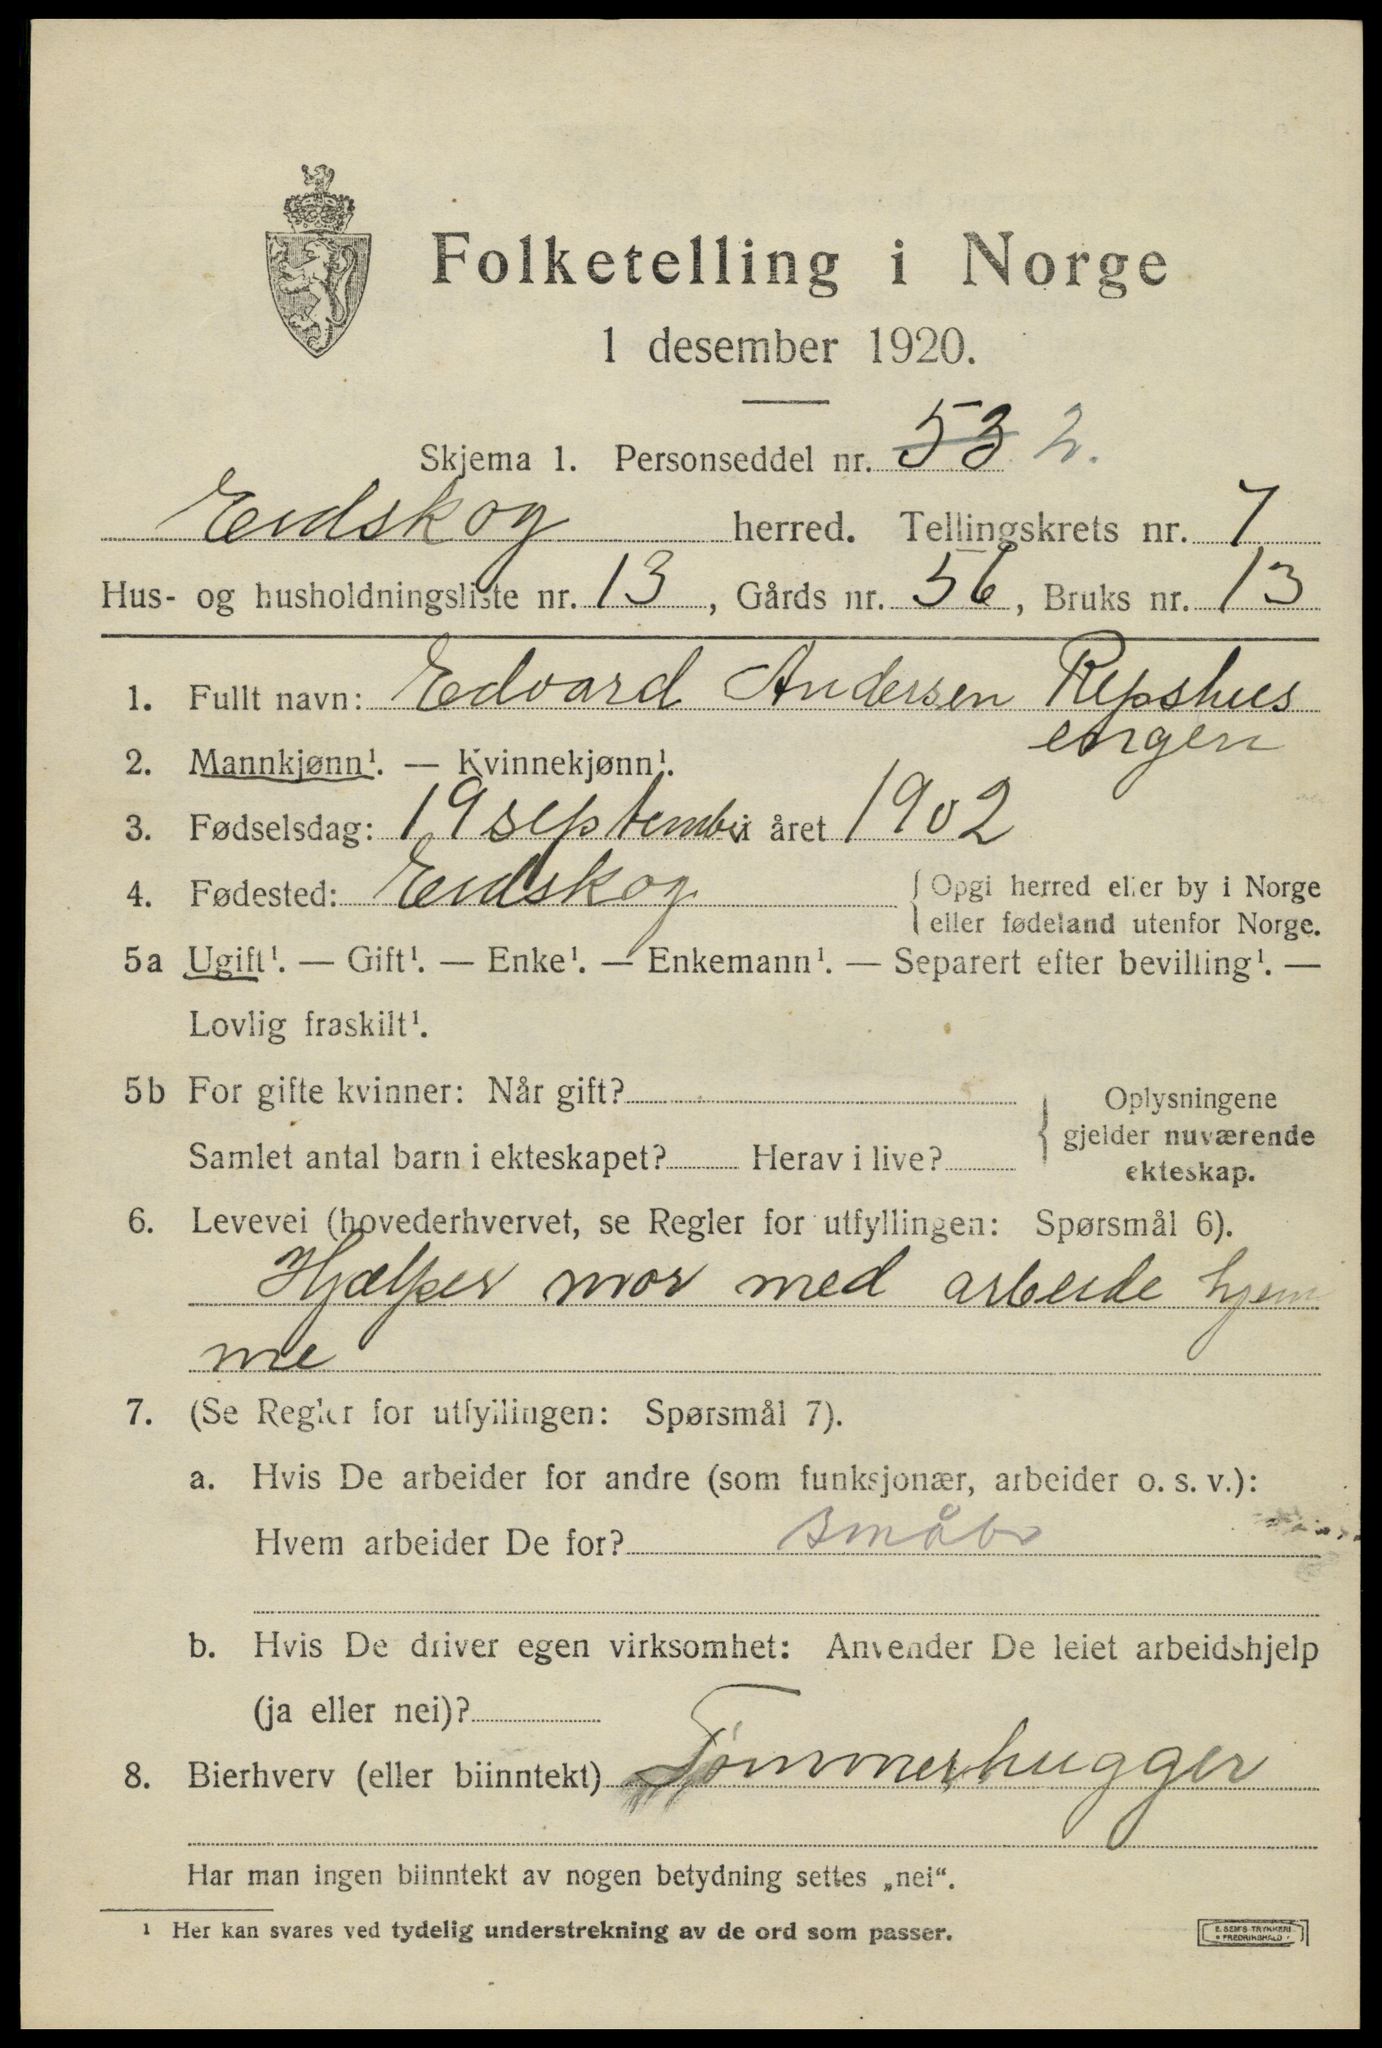 Folketelling i Norge
1 desember 1920.
Skjema 1. Personseddel nr. 53 2.
Eidskog herred. Tellingskrets nr. 7
Hus- og husholdningsliste nr. 13, Gårds nr. 56, Bruks nr. 13
1. Fullt navn: Edvard Andersen Repshus
engen
2. Mannkjønn¹. — Kvinnekjønn¹.
3. Fødselsdag: 19 september i året 1902
4. Fødested: Eidskog { Opgi herred eller by i Norge
eller fødeland utenfor Norge.
5a Ugift¹. — Gift¹. — Enke¹. — Enkemann¹. — Separert efter bevilling¹. —
Lovlig fraskilt¹.
5b For gifte kvinner: Når gift?
Samlet antal barn i ekteskapet? Herav i live?
{ Oplysningene
gjelder nuværende
ekteskap.
6. Levevei (hovederhvervet, se Regler for utfyllingen: Spørsmål 6).
Hjælper mor med arbeide hjem
me
7. (Se Regler for utfyllingen: Spørsmål 7).
a. Hvis De arbeider for andre (som funksjonær, arbeider o. s. v.):
Hvem arbeider De for? småbr
b. Hvis De driver egen virksomhet: Anvender De leiet arbeidshjelp
(ja eller nei)?
8. Bierhverv (eller biinntekt) Tømmerhugger
Har man ingen biinntekt av nogen betydning settes „nei“.
¹ Her kan svares ved tydelig understrekning av de ord som passer.
E. SEM'S TRYKKERI
FREDRIKSHALD